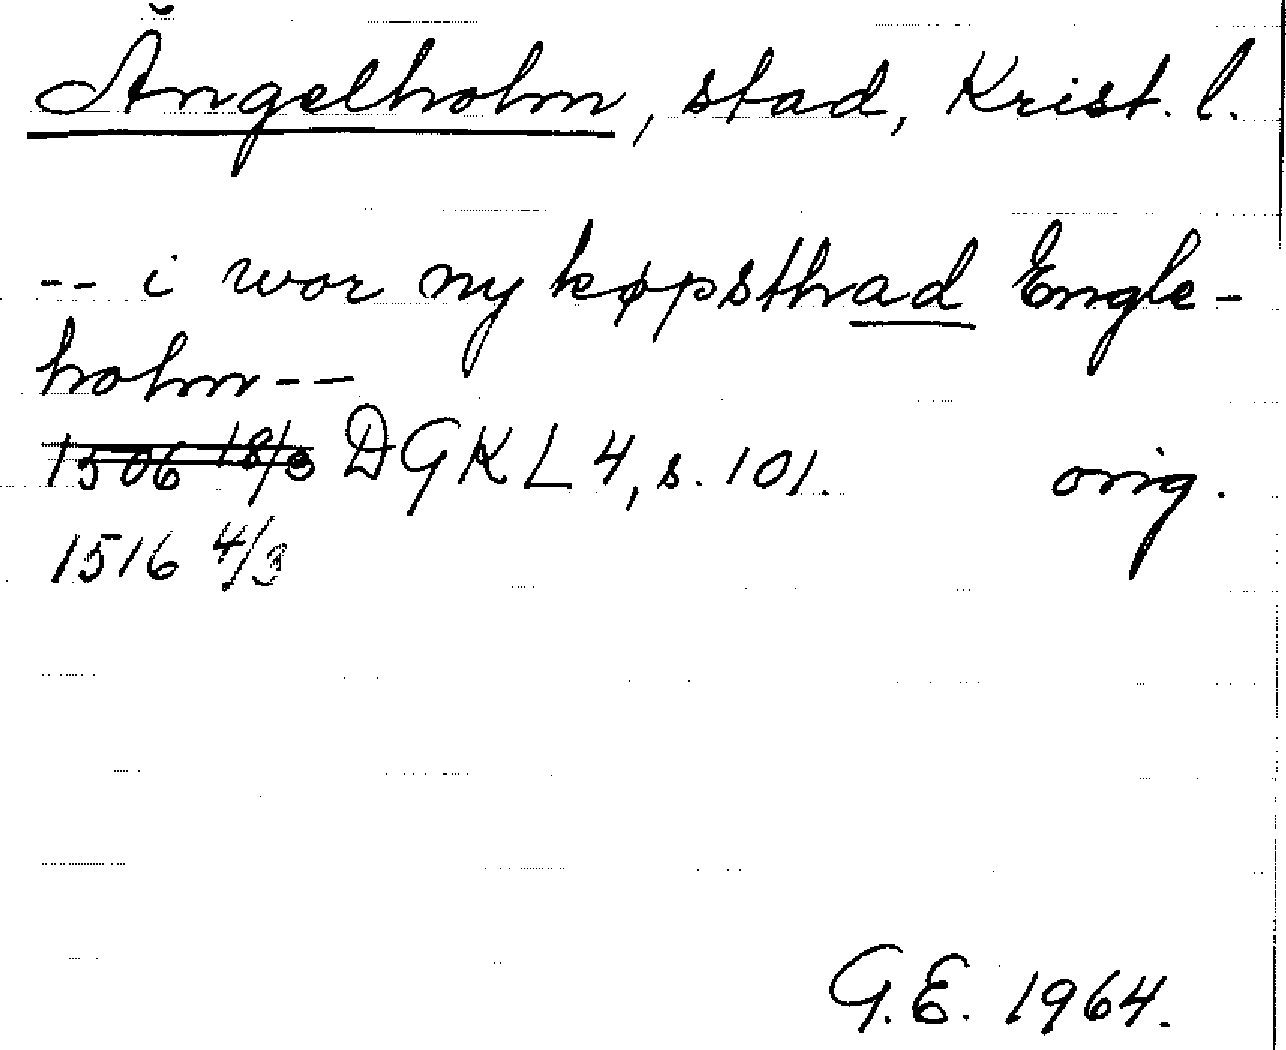 Ängelholm, stad, Krist. l.
-- i wor ny køpsthad Engle-
holm --
1506 18/3 DGKL 4, s. 101. orig.
1516 4/3
G.E. 1964.